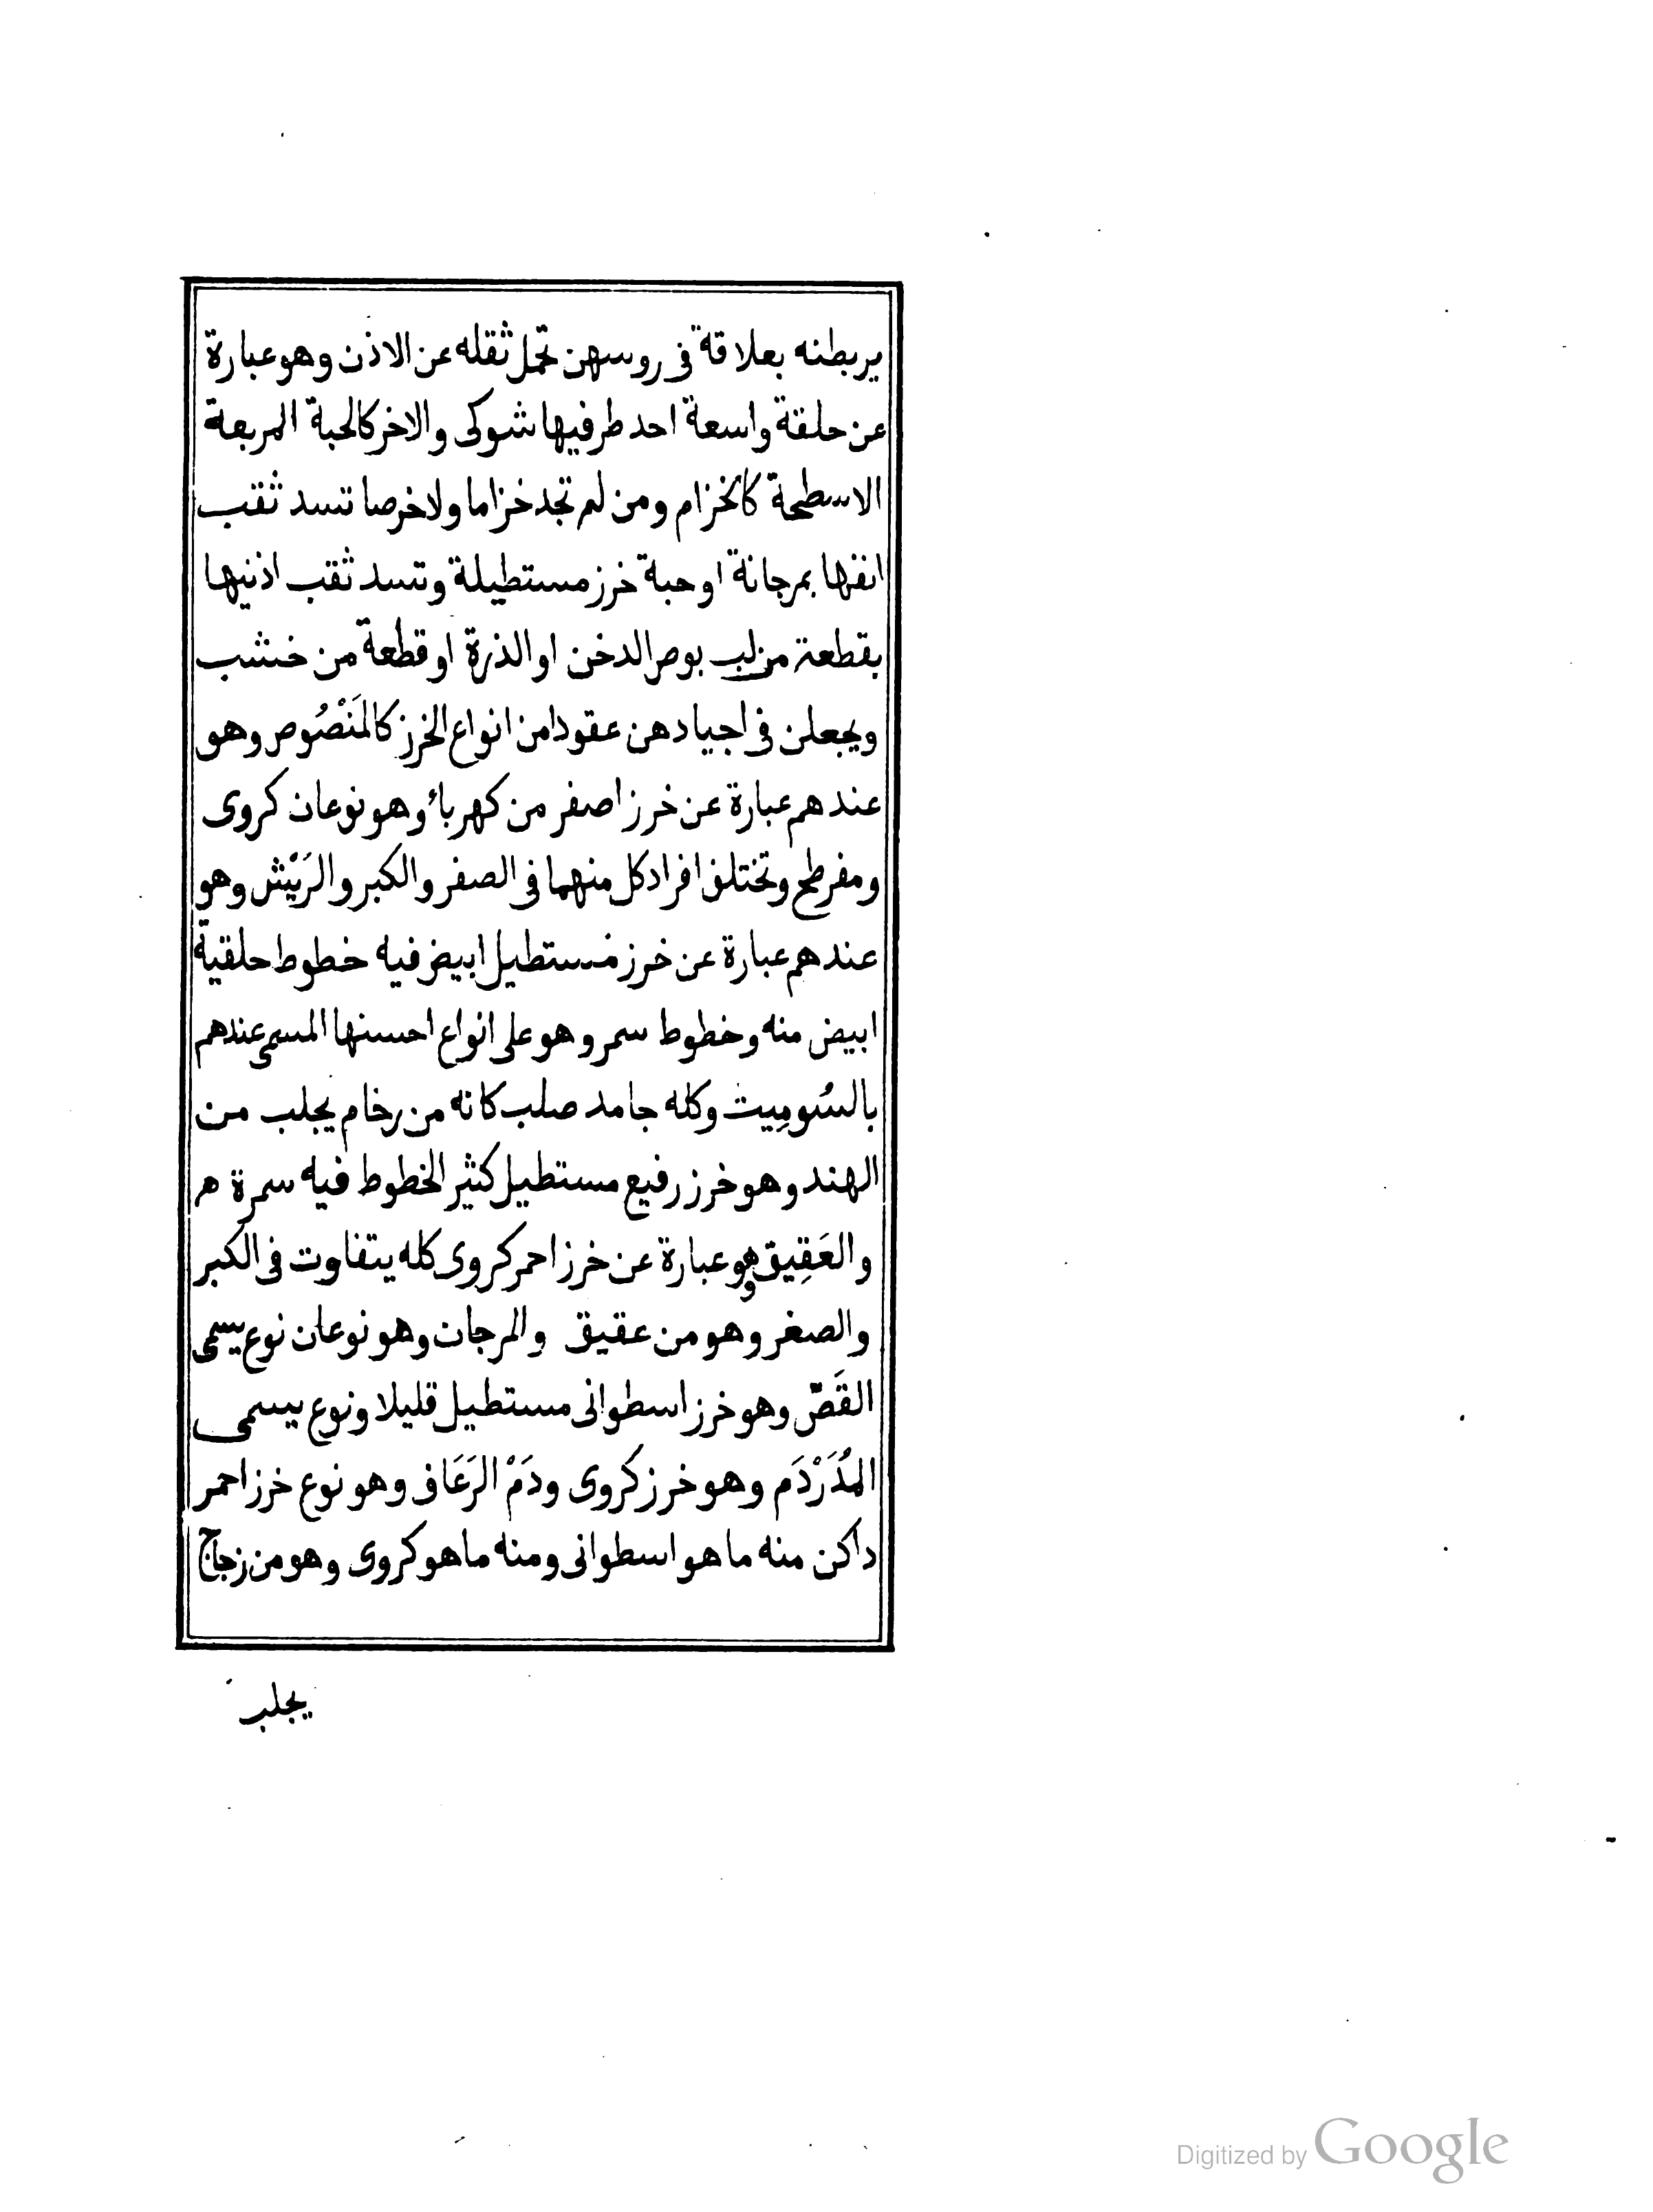 يربطنه بعلاقة فى روسهن تحمل ثقله عن الاذن وهو عبارة
عن حلقة واسعة احد طرفيها شوكى والاخر كالحبة المربعة
الاسطحة كالخزام ومن لم تجد خزاما ولا خرصا تسد ثقب
انفها بمرجانة او حبة خرز مستطيلة وتسد ثقب اذنيها
بقطعة من لب بوص الدخن او الذرة او قطعة من خشب
ويجعلن فى اجيادهن عقودا من انواع الخرز كالمَنْصُوص وهو
عندهم عبارة عن خرز اصفر من كهرباء وهو نوعان كروى
ومفرطح وتختلف افراد كل منهما فى الصغر والكبر والرَيْش وهو
عندهم عبارة عن خرز مستطيل ابيض فيه خطوط حلقية
ابيض منه وخطوط سمر وهو على انواع احسنها المسمى عندهم
بالسُومِيت وكله جامد صلب كانه من رخام يجلب من
الهند وهو خرز رفيع مستطيل كثير الخطوط فيه سمرة م
والعَقِيق وهو عبارة عن خرز احمر كروى كله يتفاوت فى الكبر
والصغر وهو من عقيق والمرجان وهو نوعان نوع يسمى
القَصّ وهو خرز اسطوانى مستطيل قليلا ونوع يسمى
المُدَرْدَم وهو خرز كروى ودَمْ الرَعَاف وهو نوع خرز احمر
داكن منه ما هو اسطوانى ومنه ما هو كروى وهو من زجاج
يجلب
Digitized by Google